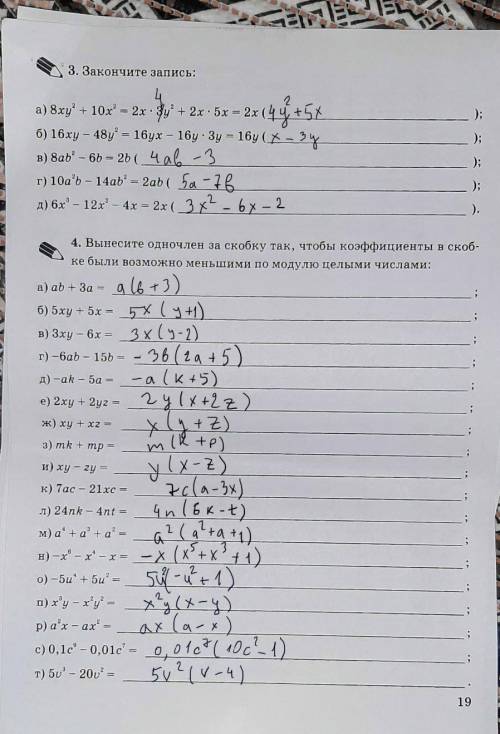 3. Закончите запись:
а) 8xy² + 10x² = 2x · 4y² + 2x · 5x = 2x ( 4y² + 5x );
б) 16xy − 48y² = 16yx − 16y · 3y = 16y ( x − 3y );
в) 8ab² − 6b = 2b ( 4ab − 3 );
г) 10a²b − 14ab² = 2ab ( 5a − 7b );
д) 6x³ − 12x² − 4x = 2x ( 3x² − 6x − 2 ).
4. Вынесите одночлен за скобку так, чтобы коэффициенты в скоб-
ке были возможно меньшими по модулю целыми числами:
а) ab + 3a = a(b + 3) ;
б) 5xy + 5x = 5x (y+1) ;
в) 3xy − 6x = 3x (y−2) ;
г) −6ab − 15b = −3b (2a + 5) ;
д) −ak − 5a = −a (k + 5) ;
е) 2xy + 2yz = 2y (x + 2z) ;
ж) xy + xz = x (y + z) ;
з) mk + mp = m (k + p) ;
и) xy − zy = y (x − z) ;
к) 7ac − 21xc = 7c (a − 3x) ;
л) 24nk − 4nt = 4n (6k − t) ;
м) a⁴ + a³ + a² = a² (a² + a + 1) ;
н) −x⁶ − x⁴ − x = −x (x⁵ + x³ + 1) ;
о) −5u⁴ + 5u² = 5u² (−u² + 1) ;
п) x³y − x²y² = x²y (x − y) ;
р) a²x − ax² = ax (a − x) ;
с) 0,1c⁹ − 0,01c⁷ = 0,01c⁷ (10c² − 1) ;
т) 5v³ − 20v² = 5v² (v − 4) .
19